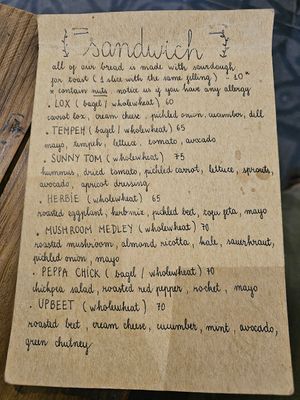 sandwich
all of our bread is made with sourdough
for toast (1 slice with the same filling) - 10"
* contain nuts notice us if you have any allergy
. LOX (bagel / wholewheat) 60
carrot lox, cream cheese, pickled onion, cucumber, dill
. TEMPEH (bagel / wholewheat) 65
mayo, tempeh, lettuce, tomato, avocado
. SUNNY TOM (wholewheat) 75
hummus, dried tomato, pickled carrot, lettuce, sprouts,
avocado, apricot dressing
. HERBIE (wholewheat) 65
roasted eggplant, herb mix, pickled beet, tofu feta, mayo
. MUSHROOM MEDLEY (wholewheat) 70
roasted mushroom, almond ricotta, kale, sauerkraut,
pickled onion, mayo
. PEPPA CHICK (bagel / wholewheat) 70
chickpea salad, roasted red pepper, rocket, mayo
. UPBEET (wholewheat) 70
roasted beet, cream cheese, cucumber, mint, avocado,
green chutney